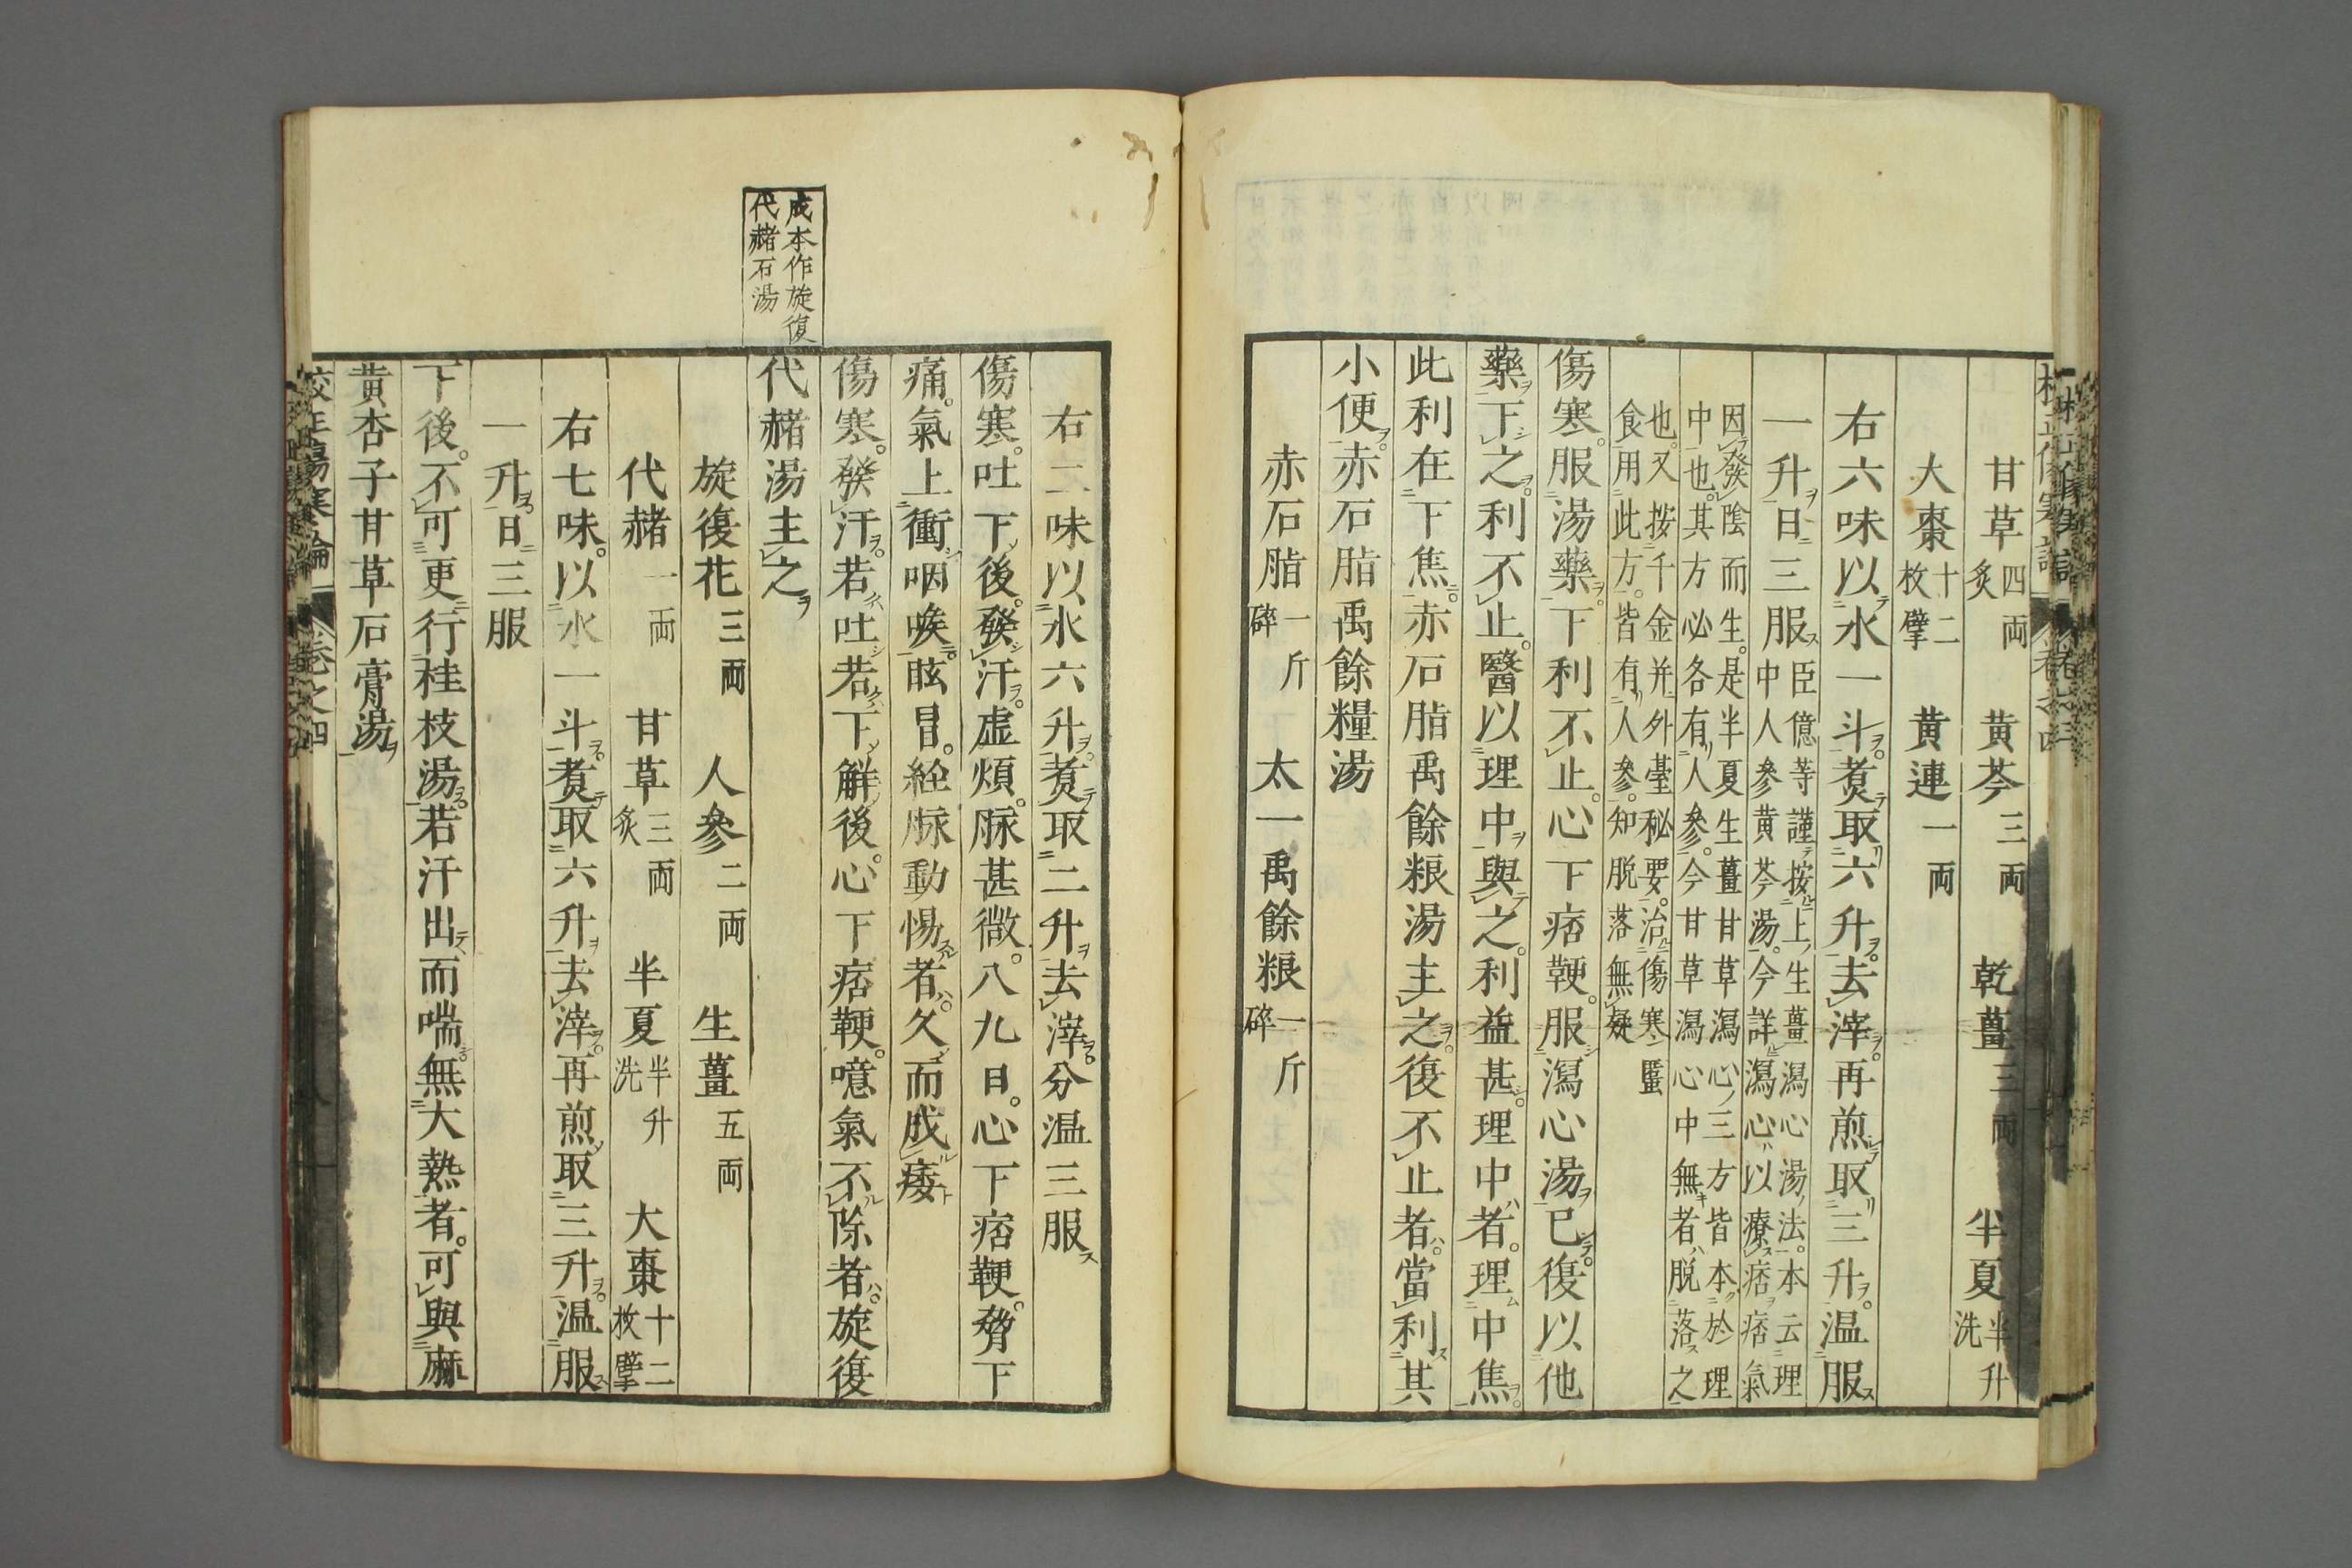 甘草四両炙　黄芩三両　乾薑三両　半夏半升洗
大棗十二枚擘　黄連一両
右六味以水一斗煑取六升去滓再煎取三升温服
一升日三服臣億等謹按上生薑瀉心湯法本云理
中人參黄芩湯今詳瀉心以療痞痞氣
因發陰而生是半夏生薑甘草瀉心三方皆本於理
中也其方必各有人參今甘草瀉心中無者脱落之
也又按千金并外臺秘要治傷寒䘌
食用此方皆有人參知脱落無疑
傷寒服湯藥下利不止心下痞鞕服瀉心湯已復以他
藥下之利不止醫以理中與之利益甚理中者理中焦
此利在下焦赤石脂禹餘粮湯主之復不止者當利其
小便赤石脂禹餘糧湯
赤石脂一斤碎　太一禹餘粮一斤碎
右二味以水六升煑取二升去滓分温三服
傷寒吐下後發汗虚煩脉甚微八九日心下痞鞕脅下
痛氣上衝咽喉眩冒經脉動惕者久而成痿
傷寒發汗若吐若下解後心下痞鞕噫氣不除者旋復
代赭湯主之
成本作旋復
代赭石湯
旋復花三両　人參二両　生薑五両
代赭一両　甘草三両炙　半夏半升洗　大棗十二枚擘
右七味以水一斗煑取六升去滓再煎取三升温服
一升日三服
下後不可更行桂枝湯若汗出而喘無大熱者可與麻
黄杏子甘草石膏湯
校正傷寒論　卷之四